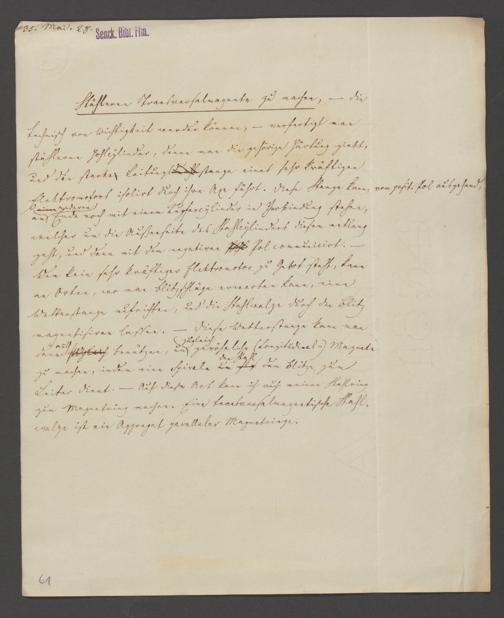 35. Mai. 28.
Senck. Bibl. Ffm.
Stählerne Transversalmagnete zu machen, — die
technisch von Wichtigkeit werden können, — verfertigt man
stählerne Hohlcylinder, denen man die gehörige Härtung giebt,
und die starke Leitungsstange eines sehr kräftigen
Elektromotors isolirt durch ihre Axe führt. Diese Stange kann, vom posit. Pol ausgehend,
am anderen Ende noch mit einem Kupfercylinder in Verbindung stehen,
welcher um die Außenseite des Stahlcylinders diesen entlang
geht, und dann mit dem negativen Pol communicirt. —
Wem kein sehr kräftiger Elektromotor zu Gebot steht, kann
an Orten, wo man Blitzschläge erwarten kann, eine
Wetterstange aufrichten, und die Stahlwalze durch den Blitz
magnetisiren lassen. — Diese Wetterstange kann man
dann auch benützen, um zugleich gewöhnliche (Longitudinal-) Magnete
zu machen, indem eine Spirale um den Stahl dem Blitz zum
Leiter dient. — Auf diese Art kann ich auch einen Stahlring
zum Magnetring machen. Eine transversalmagnetische Stahl-
walze ist ein Aggregat paralleler Magnetringe.
61